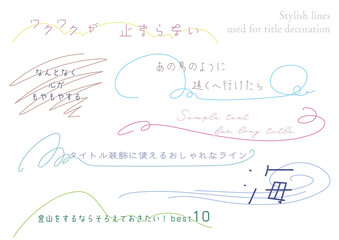 ワクワクが 止まらない
Stylish lines
used for title decoration
なんとなく
心が
もやもやする
あの鳥のように
遠くへ行けたら
Sample text
for long title
タイトル装飾に使えるおしゃれなライン
海
登山をするならそろえておきたい！best10